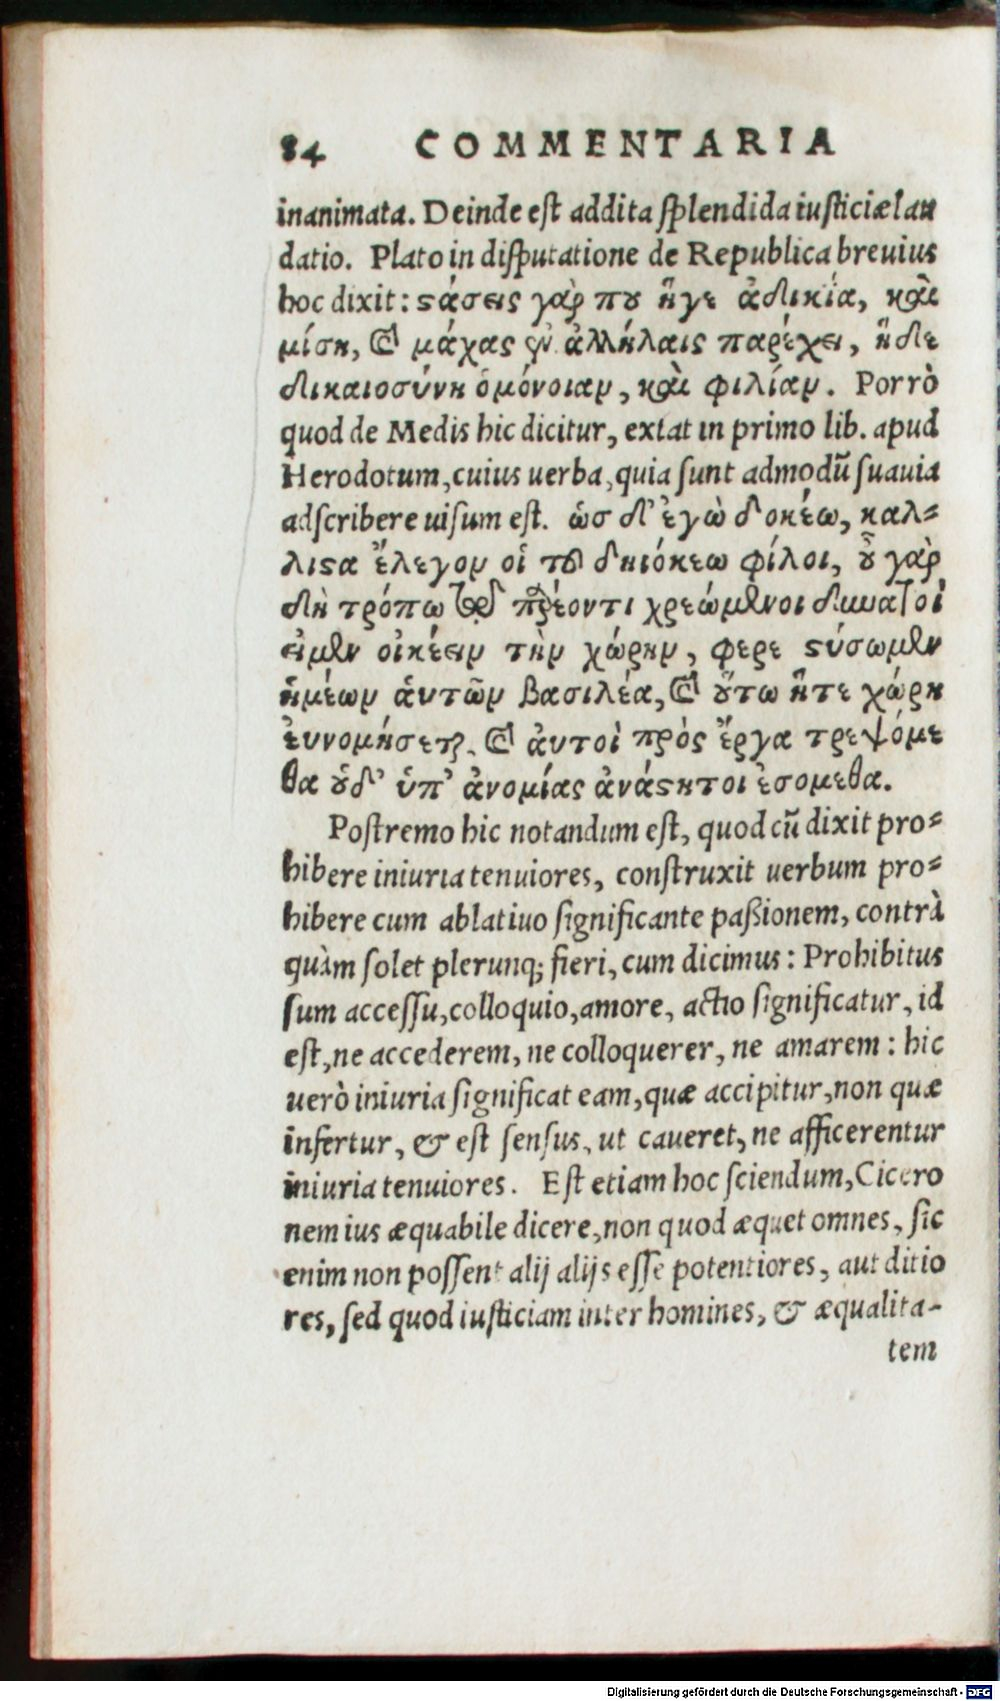 84 COMMENTARIA
inanimata. Deinde est addita splendida iusticiæ lau
datio. Plato in disputatione de Republica breuius
hoc dixit: ϛάσεις γάρ που ἥγε ἀδικία, καὶ
μίση, καὶ μάχας ἐν ἀλλήλαις παρέχει, ἡδε
δικαιοσύνη ὁμόνοιαν, καὶ φιλίαν. Porrò
quod de Medis hic dicitur, extat in primo lib. apud
Herodotum, cuius uerba, quia sunt admodū suauia
adscribere uisum est. ὡσ δ' ἐγὼ δοκέω, καλ-
λιϛα ἔλεγον οἱ τοῦ δηιόκεω φίλοι, ὀυ γὰρ
δὴ τρόπω τῷ παρέοντι χρεώμενοι δυνατοί
ειμεν οἰκέειν τὴν χώρην, φερε ϛύσωμεν
ἡμέων ἁυτῶν βασιλέα, καὶ ὅυτω ἥτε χώρη
ἐυνομήσεται, καὶ ἀυτοὶ πρὸς ἔργα τρεψόμε
θα ὀυδ' ὑπ' ἀνομίας ἀνάϛητοι ἐσομεθα.
Postremo hic notandum est, quod cū dixit pro-
hibere iniuria tenuiores, construxit uerbum pro-
hibere cum ablatiuo significante paßionem, contrà
quàm solet plerunq; fieri, cum dicimus: Prohibitus
sum accessu, colloquio, amore, actio significatur, id
est, ne accederem, ne colloquerer, ne amarem: hic
uerò iniuria significat eam, quæ accipitur, non quæ
infertur, & est sensus, ut caueret, ne afficerentur
iniuria tenuiores. Est etiam hoc sciendum, Cicero
nem ius æquabile dicere, non quod æquet omnes, sic
enim non possent alij alijs esse potentiores, aut ditio
res, sed quod iusticiam inter homines, & æqualita-
tem
Digitalisierung gefördert durch die Deutsche Forschungsgemeinschaft - DFG